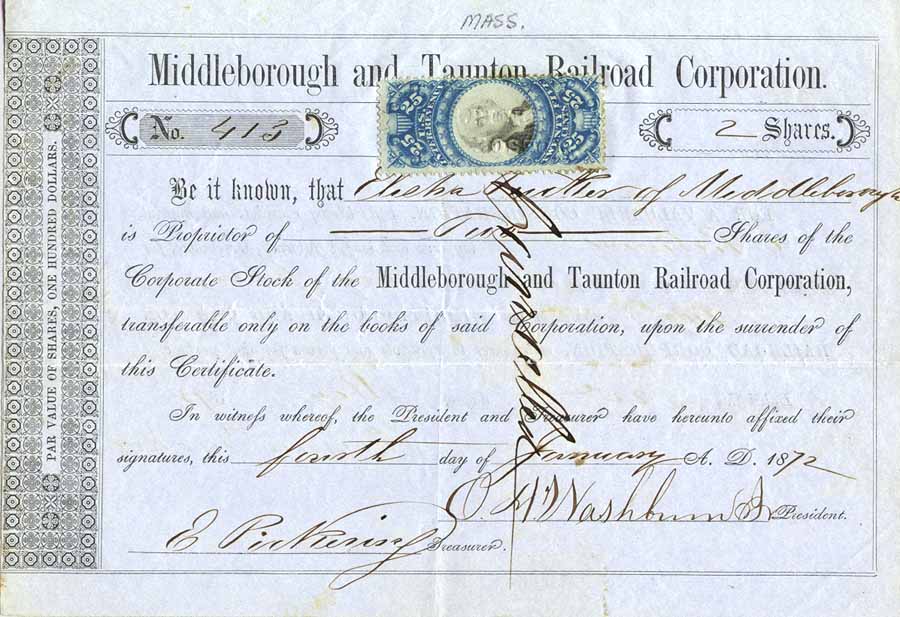 MASS.
Middleborough and Taunton Railroad Corporation.
No. 413
25 25
2 Shares.
Be it known, that Elisha of Middleborough
is Proprietor of Two Shares of the
Corporate Stock of the Middleborough and Taunton Railroad Corporation,
transferable only on the books of said Corporation, upon the surrender of
this Certificate.
In witness whereof, the President and Treasurer have hereunto affixed their
signatures, this fourth day of January A. D. 1872
O. Washburn Jr President.
E Pickering Treasurer.
PAR VALUE OF SHARES, ONE HUNDRED DOLLARS.